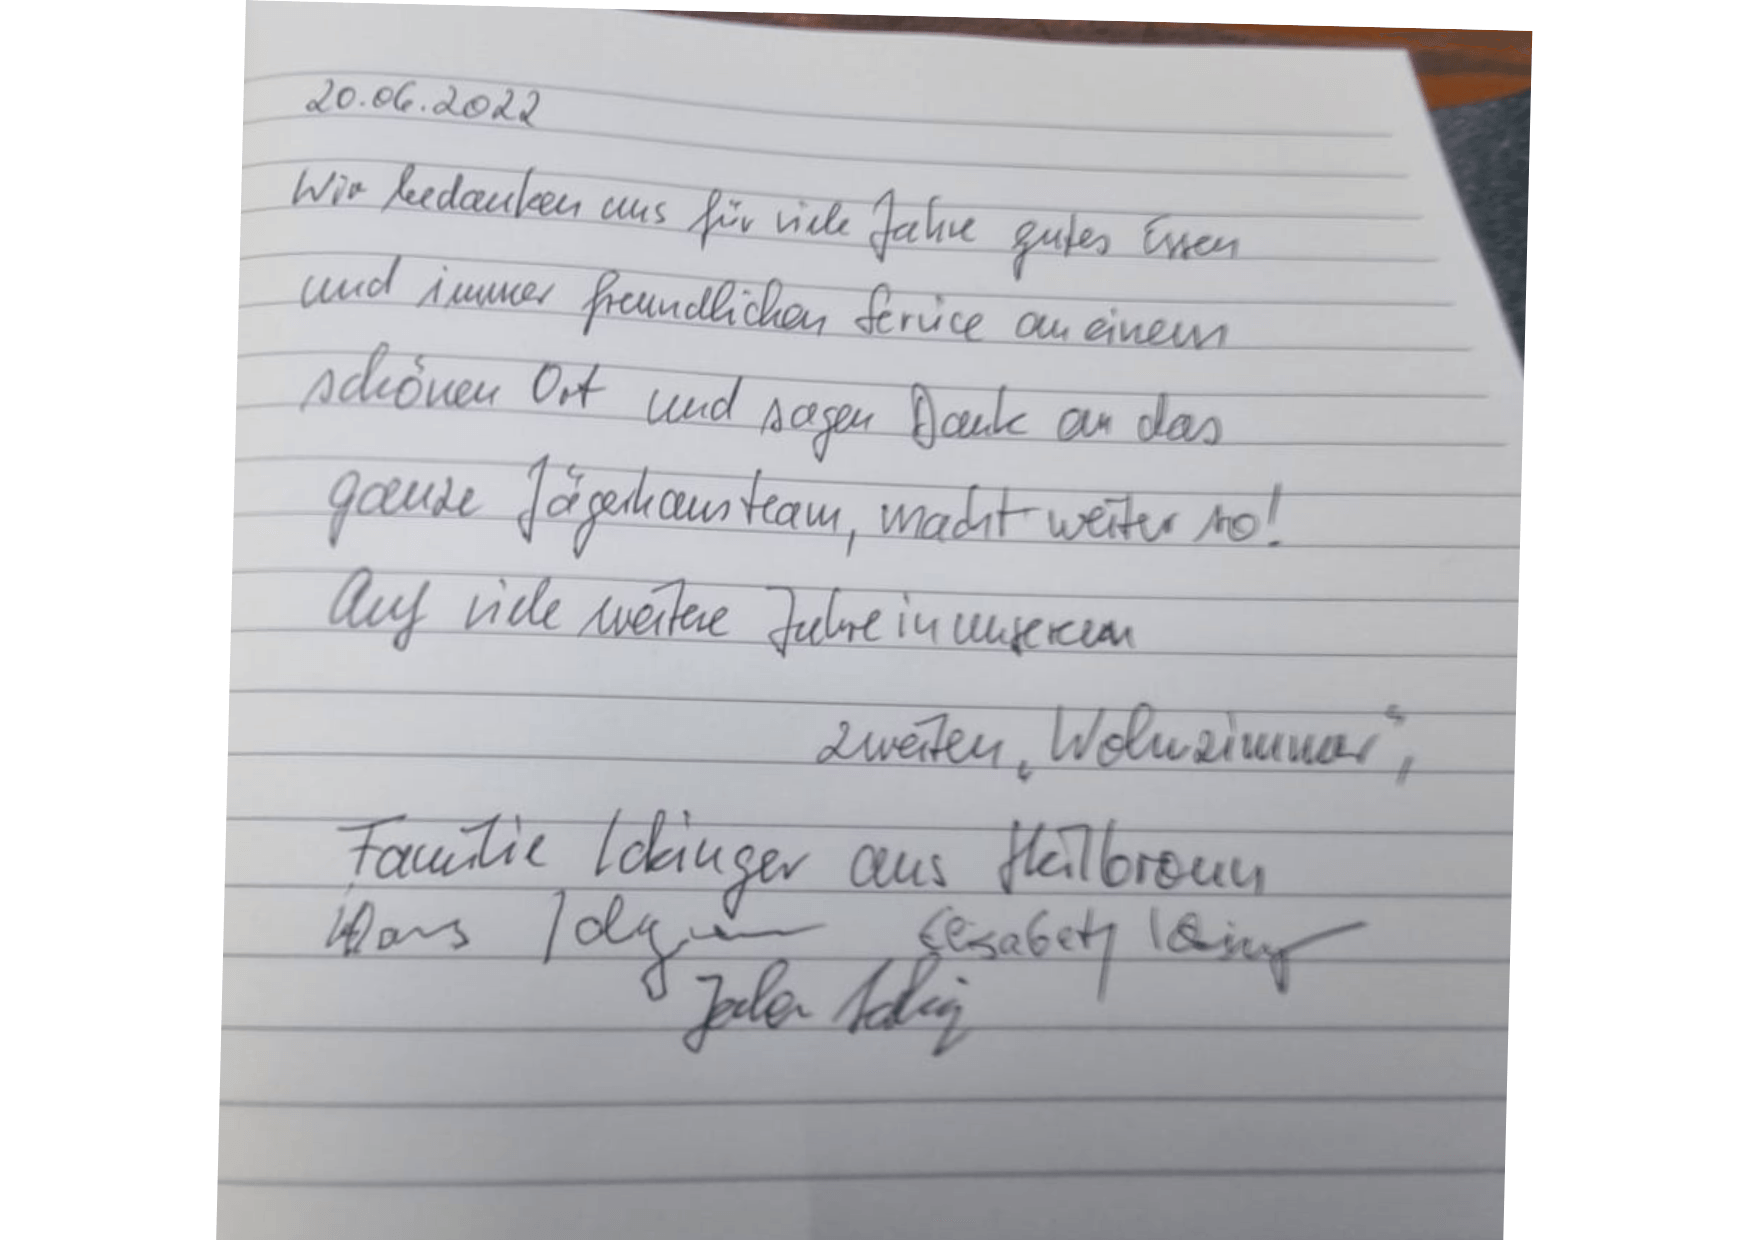 20.06.2022
Wir bedanken uns für viele Jahre gutes Essen
und immer freundlichen Service an einem
schönen Ort und sagen Dank an das
ganze Jägerhausteam, macht weiter so!
Auf viele weitere Jahre in unserem
zweiten „Wohnzimmer“,
Familie Ickinger aus Heilbronn
Elisabeth